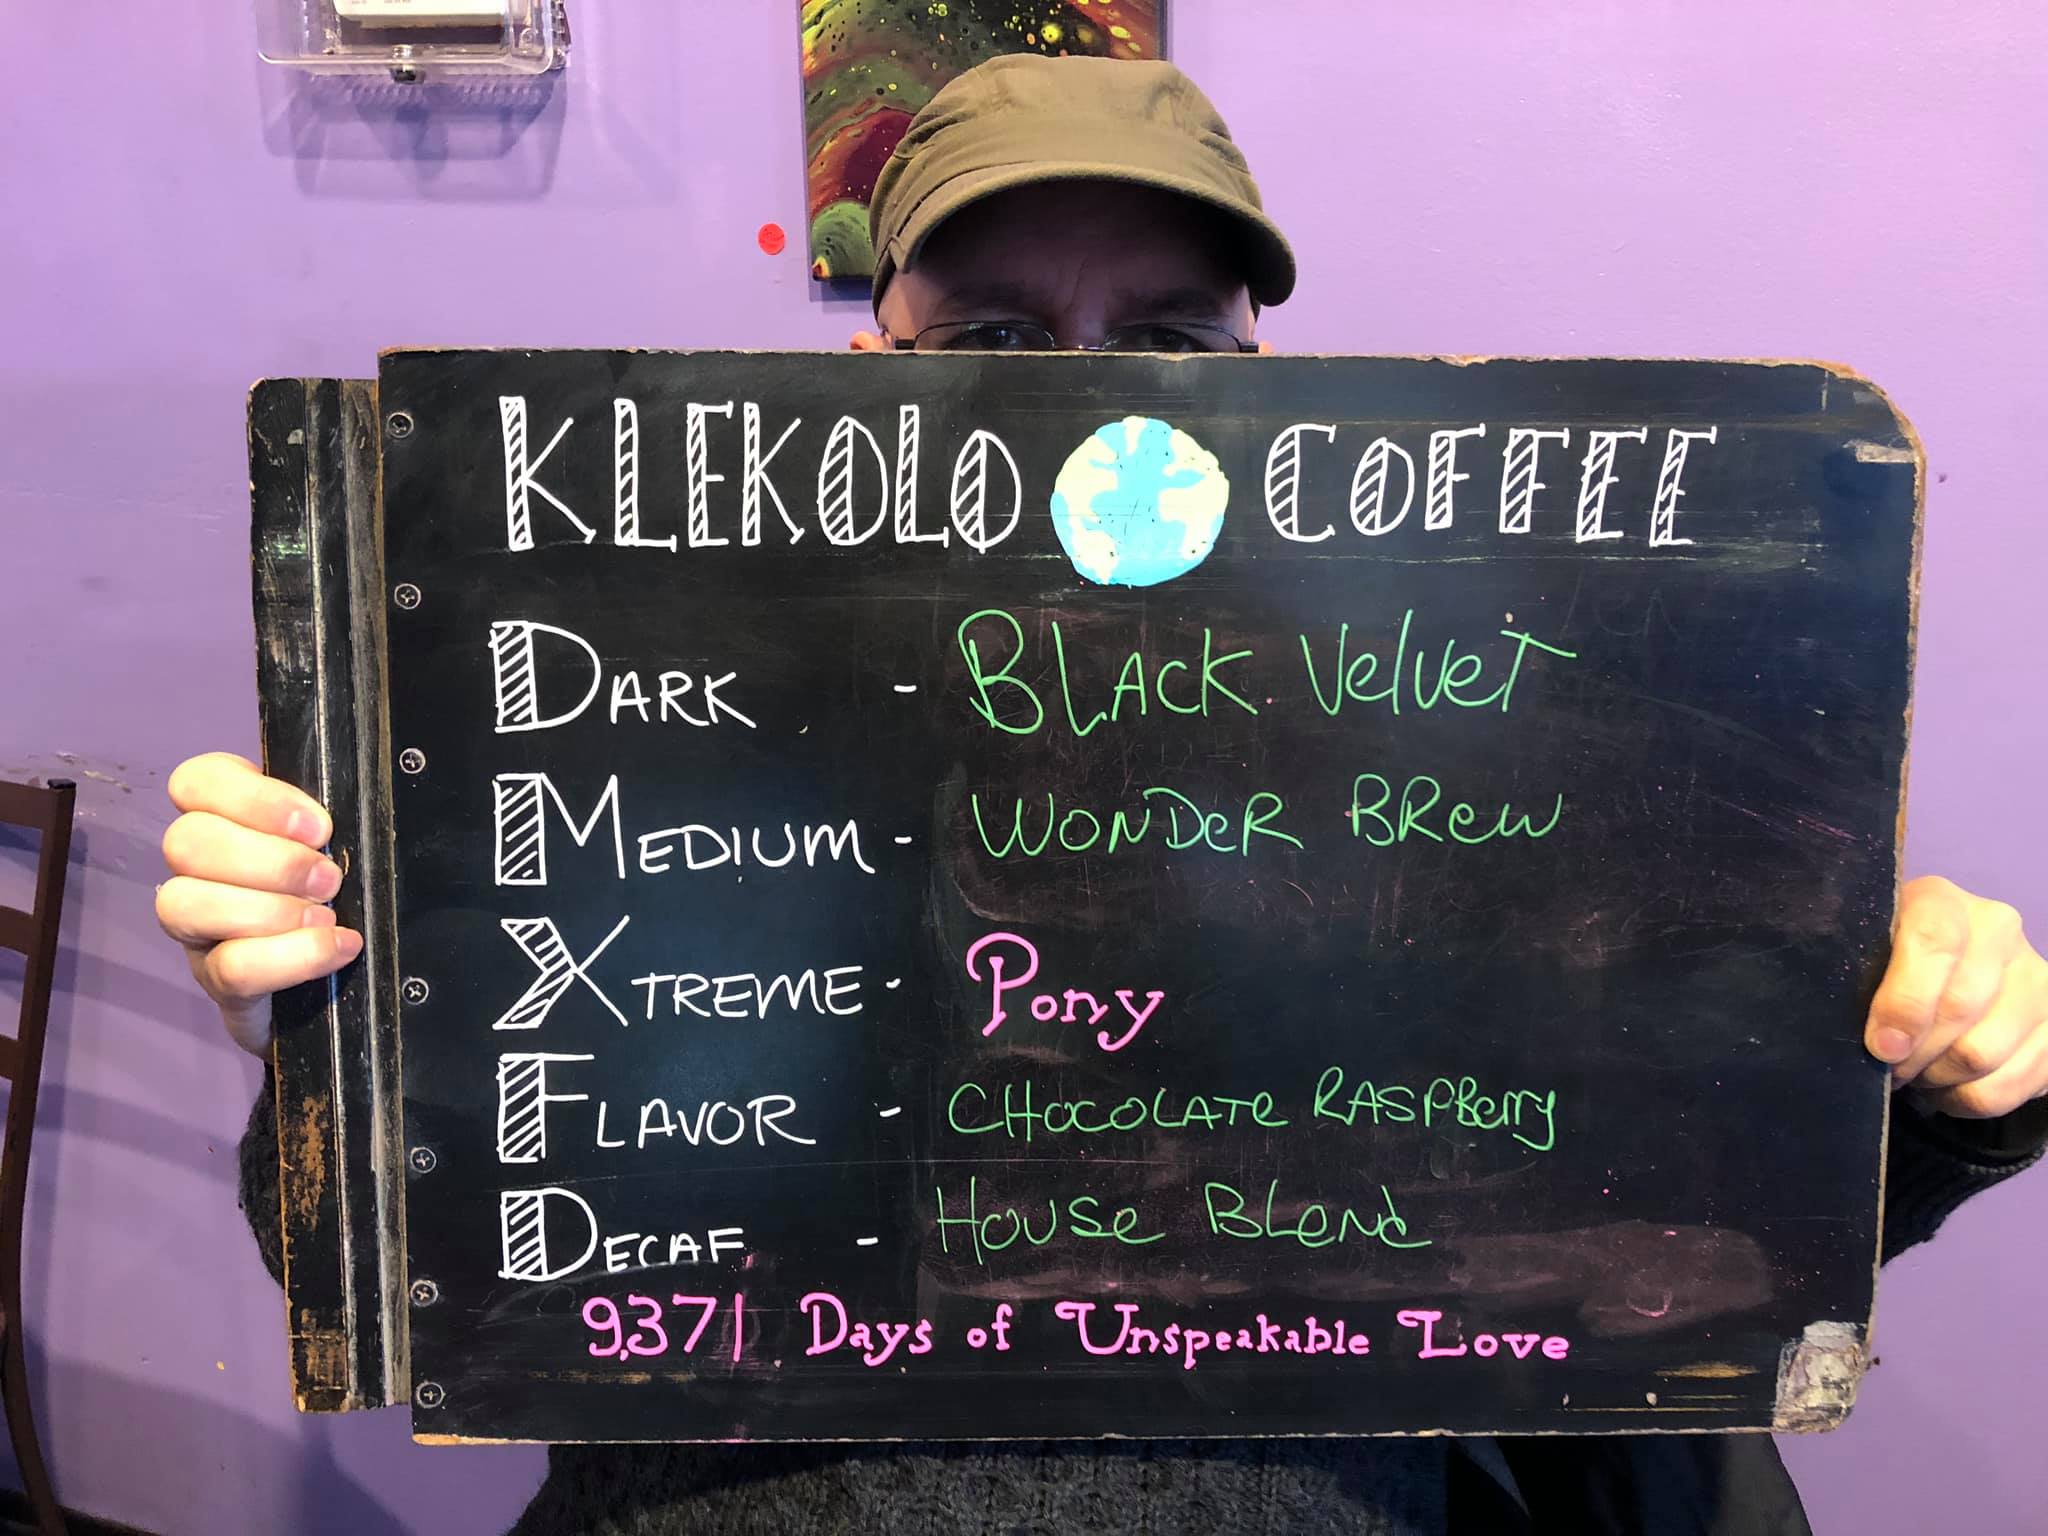 KLEKOLO COFFEE
DARK - BLACK Velvet
MEDIUM - WONDeR BRew
XTREME - Pony
FLAVOR - CHOCOLATe RASPBerry
DECAF - HOUSe BLeNd
9,371 Days of Unspeakable Love